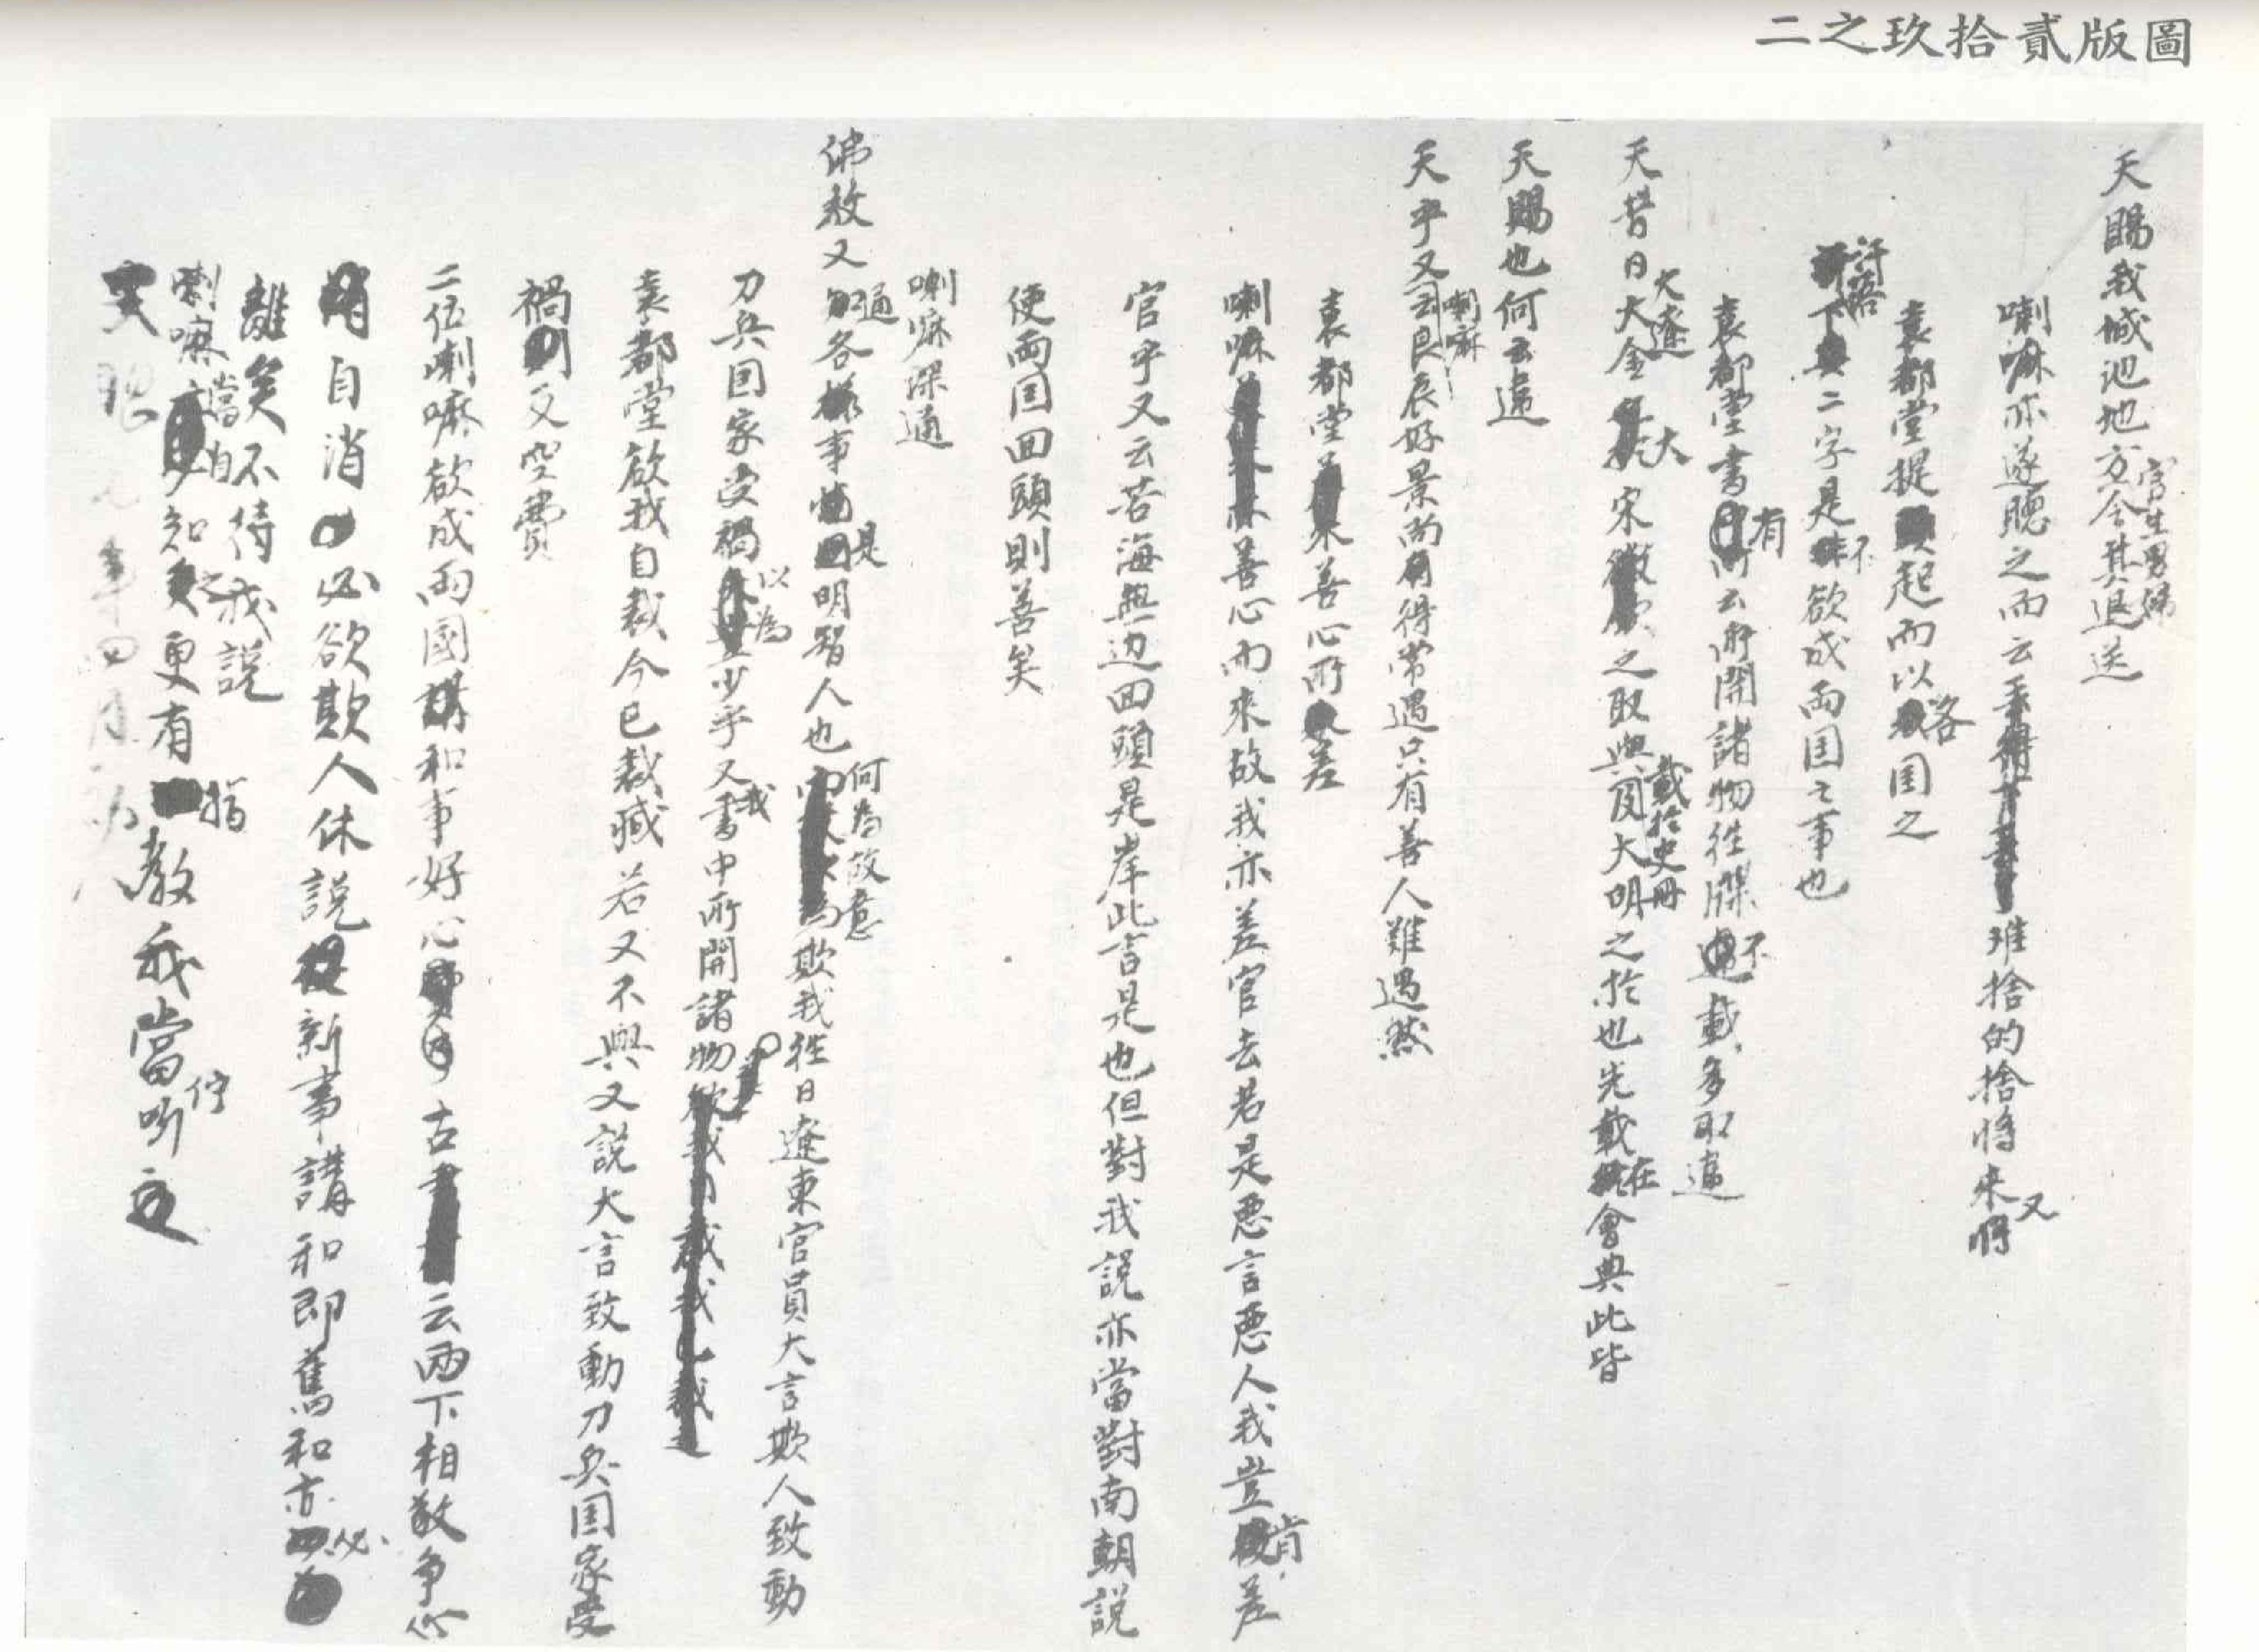 圖版貳拾玖之二
天賜我城池地方官生男婦令其退送
喇嘛亦遂聽之而云難捨的捨將來又將
袁都堂提起而以各国之
汗諾下二字是不欲成兩国之事也
袁都堂書有所云所開諸物往牒不載多取違
天昔日大遼大金大宋之取與載於史冊大明之於也先載在會典此皆
天賜也何云違
天乎又喇嘛云良辰好景尚有得常遇只有善人難遇然
袁都堂善心所差
喇嘛善心而來故我亦差官去若是惡言惡人我豈肯差
官乎又云苦海無边回頭是岸此言是也但對我說亦當對南朝說
使兩国回頭則善矣
喇嘛深通
佛教又通各樣事情是明智人也何為故意欺我往日遼東官員大言欺人致動
刀兵国家受禍以為少乎又我書中所開諸物
袁都堂欲我自裁今已裁減若又不與又說大言致動刀兵国家受
禍則又空費
二位喇嘛欲成兩國講和事好心古云兩下相敬争心
自消必欲欺人休説新事講和即舊和亦必
離矣不待我説
喇嘛當自知之更有指教我當听之
天聰元年四月初八